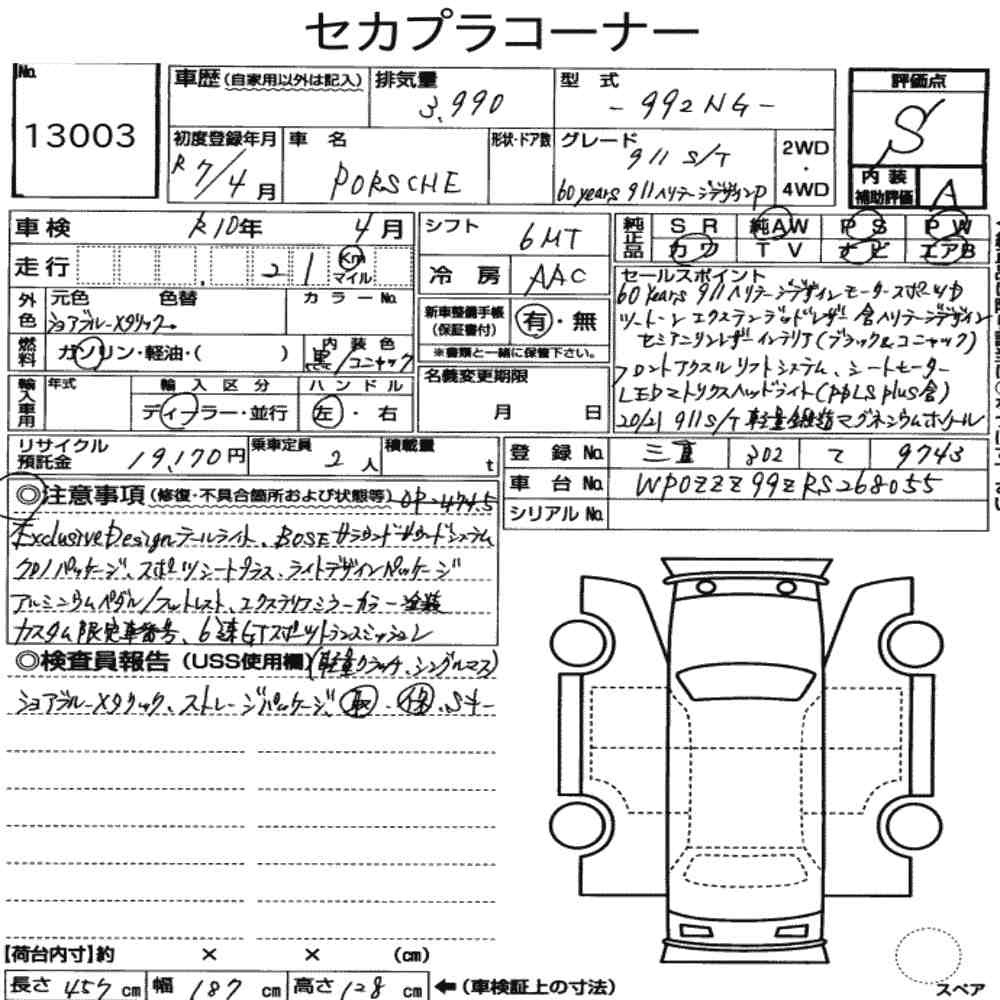 セカプラコーナー
No. 13003
車歴 (自家用以外は記入)
排気量 3,990
型 式 -992NG-
評価点 S
内装補助評価 A
初度登録年月 R7/4月
車 名 PORSCHE
形状・ドア数
グレード 911 S/T
60years 911ヘリテージデザインP
2WD・4WD
車検 R10年 4月
走行 21 Km マイル
シフト 6MT
冷房 AAC
純正品 SR 純AW PS PW
カワ TV ナビ エアB
外色 元色 色替 カラーNo.
ショアブルーメタリック
燃料 ガソリン・軽油・( )
内装色 黒/コニャック
新車整備手帳(保証書付) 有・無
※書類と一緒に保管下さい。
セールスポイント
60 Years 911ヘリテージデザインモータースポーツP
ツートーンエクステンデッドレザー含ヘリテージデザイン
セミアニリンレザーインテリア(ブラック&コニャック)
フロントアクスルリフトシステム、シートモーター
LEDマトリクスヘッドライト(PDLS plus含)
20/21 911 S/T 軽量鍛造マグネシウムホイール
輸入車用 年式 輸入区分 ディーラー・並行
ハンドル 左・右
名義変更期限 月 日
リサイクル預託金 19,170円
乗車定員 2人
積載量 t
登録No. 三重 302 て 9743
車台No. WP0ZZZ99ZRS268055
シリアルNo.
◎注意事項 (修復・不具合箇所および状態等) OP-474.5
Exclusive Designテールライト、BOSEサラウンドサウンドシステム
クロノパッケージ、スポーツシートプラス、ライトデザインパッケージ
アルミニウムペダル/フットレスト、エクステリアミラーカラー塗装
カスタム限定車番号、6速GTスポーツトランスミッション
◎検査員報告 (USS使用欄) (軽量クラッチ、シングルマス)
ショアブルーメタリック、ストレージパッケージ、取・保・Sキー
【荷台内寸】約 × × (cm)
長さ 457 cm 幅 187 cm 高さ 128 cm ←(車検証上の寸法)
スペア